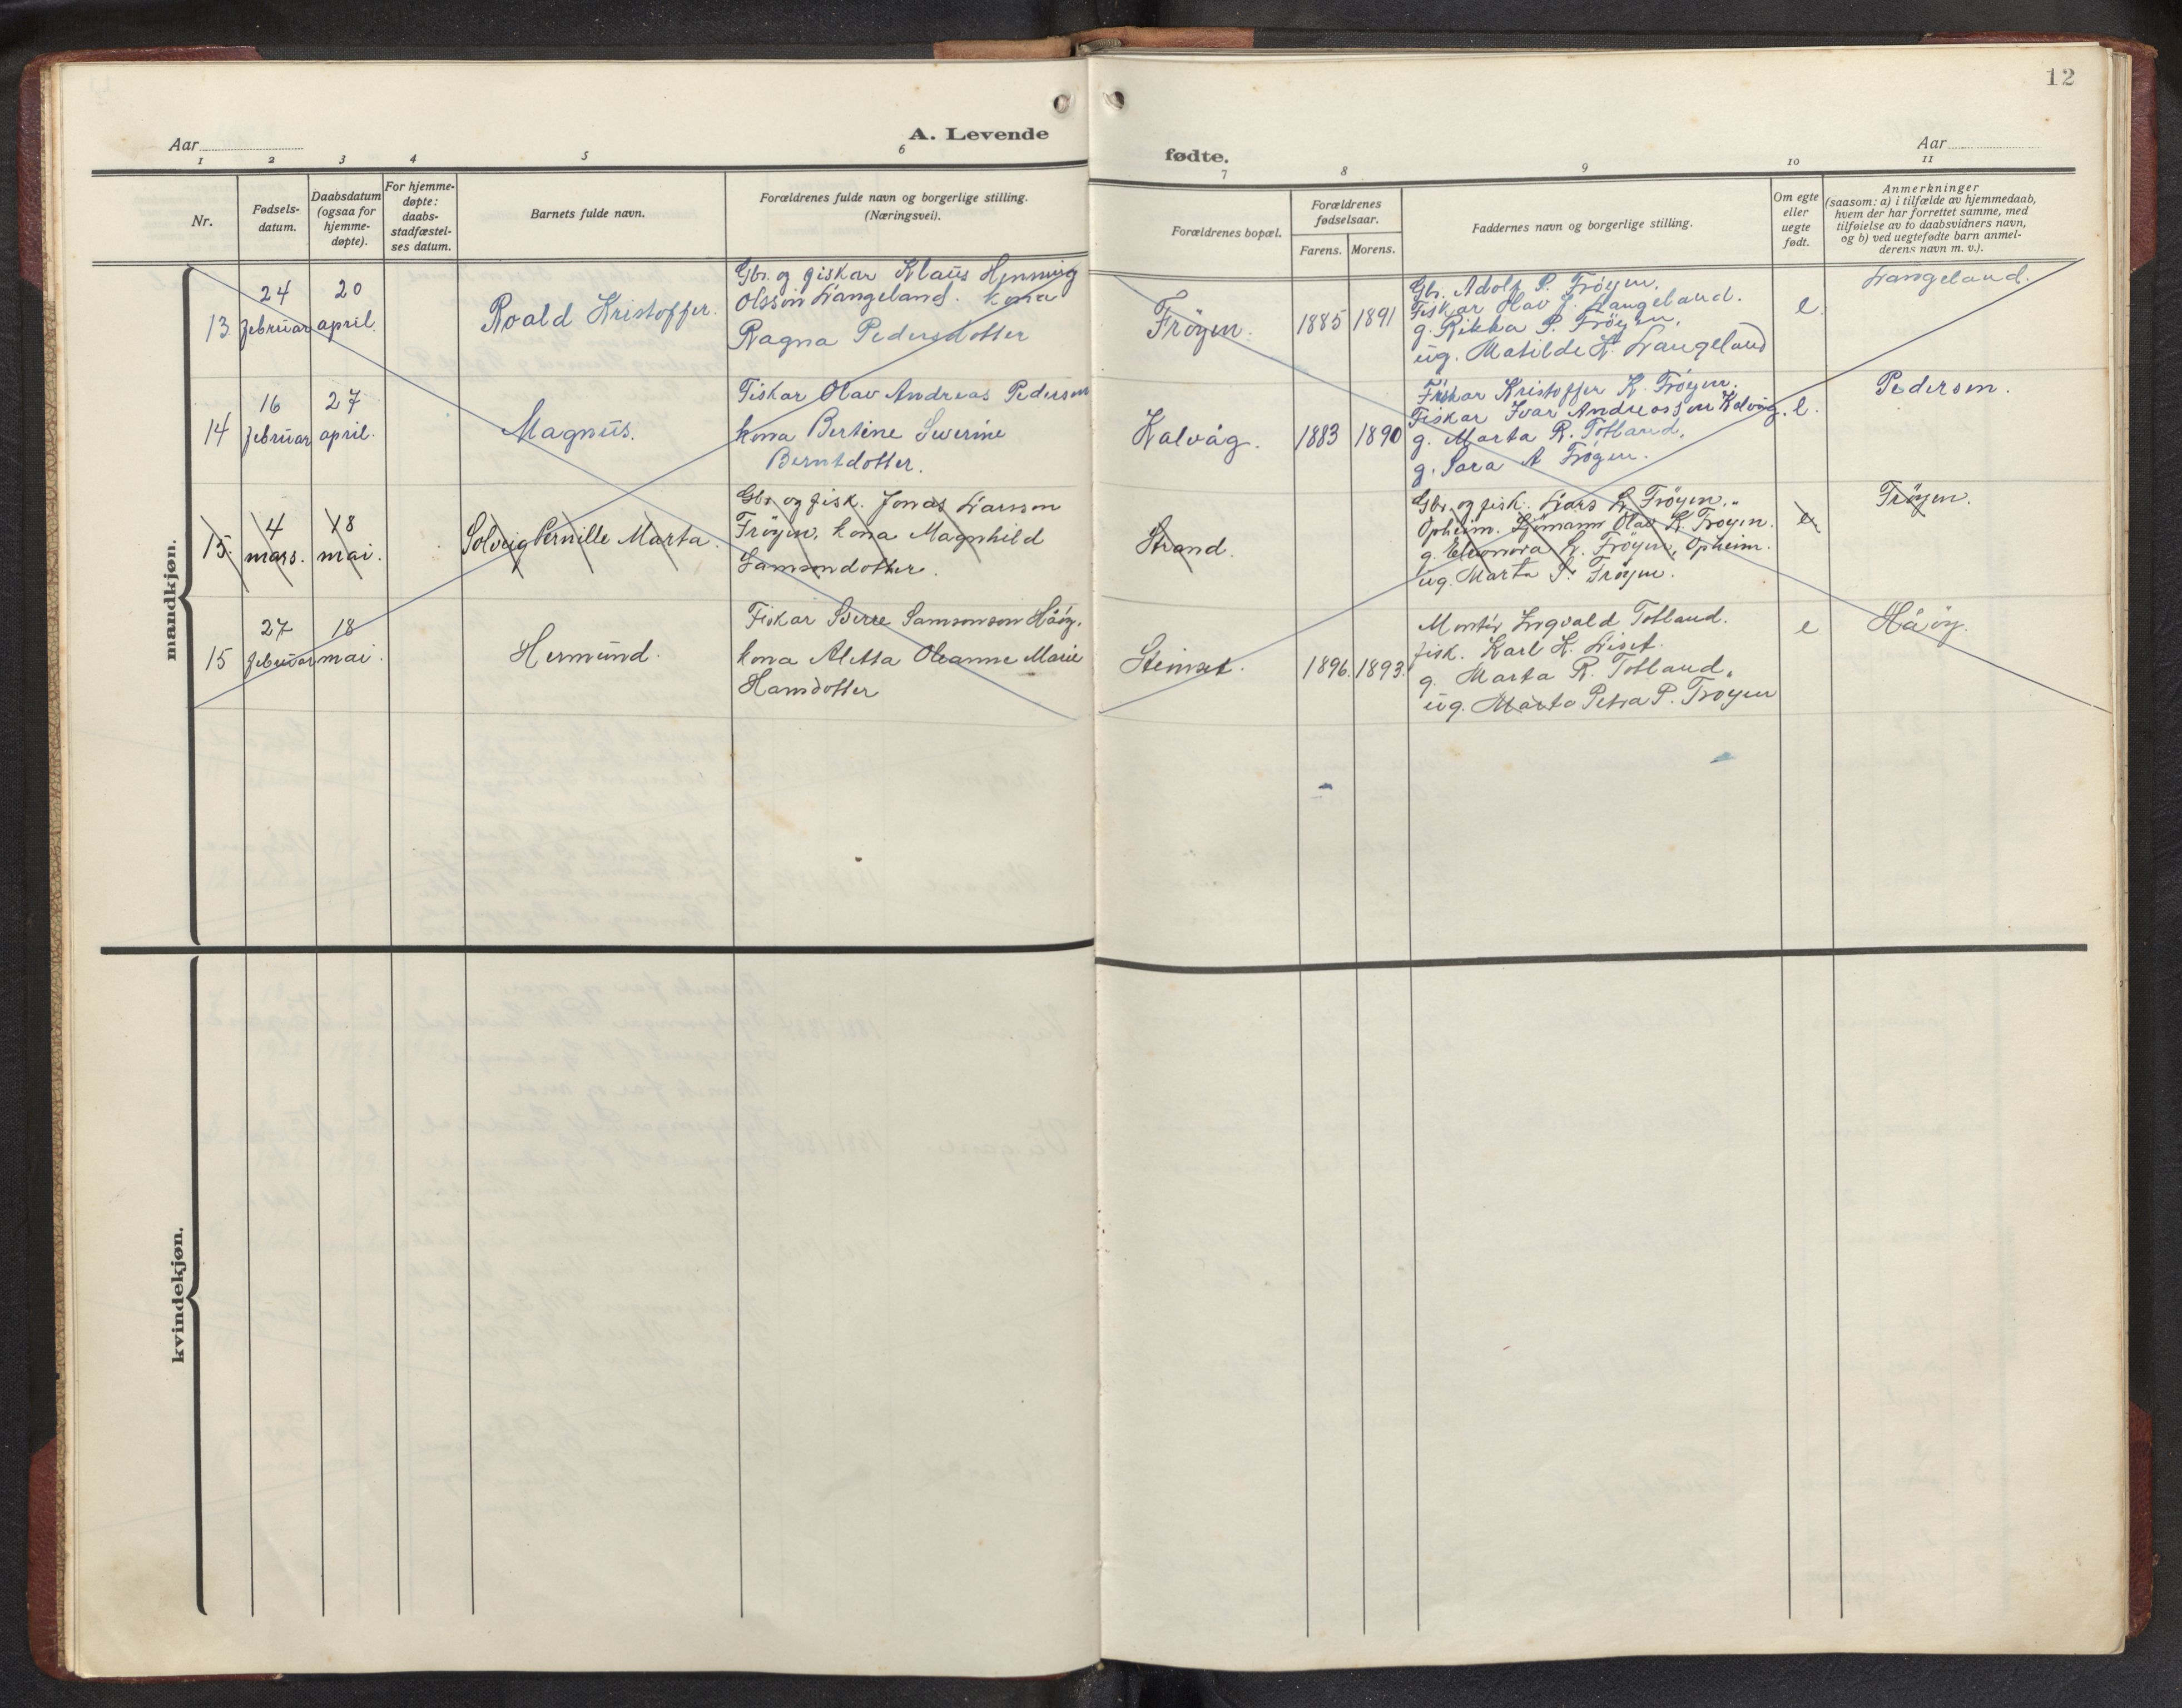 12
A. Levende
fødte.
Aar
Aar
1 2 3 4 5 6 7 8 9 10 11
Nr.
Fødsels-
datum.
Daabsdatum
(ogsaa for
hjemme-
døpte).
For hjemme-
døpte:
daabs-
stadfæstel-
ses datum.
Barnets fulde navn.
Forældrenes fulde navn og borgerlige stilling.
(Næringsvei).
Forældrenes bopæl.
Forældrenes
fødselsaar.
Farens. Morens.
Faddernes navn og borgerlige stilling.
Om egte
eller
uegte
født.
Anmerkninger
(saasom: a) i tilfælde av hjemmedaab,
hvem der har forrettet samme, med
tilføielse av to daabsvidners navn,
og b) ved uegtefødte barn anmel-
derens navn m. v.).
mandkjøn.
13
24
februar
20
april.
Roald Kristoffer.
Gbr. og fiskar Klaus Henning
Olsson Langeland. kona
Ragna Pedersdotter
Frøyen.
1885 1891
Gbr. Adolf P. Frøyen.
Fiskar Olav J. Langeland.
g. Rikka P. Frøyen.
ug. Matilde K. Langeland
e.
Langeland.
14
16
februar
27
april.
Magnus.
Fiskar Olav Andreas Pedersen
kona Bertine Severine
Berntdotter.
Kalvåg.
1883 1890
Fiskar Kristoffer K. Frøyen.
Fiskar Ivar Andreassen Kalvåg.
g. Marta R. Totland.
g. Sara A Frøyen.
e.
Pedersen.
15.
4
mars.
18
mai.
Solveig Pernille Marta.
Gbr og fisk. Jonas Larsson
Frøyen, kona Magnhild
Samsondotter.
Strand.
Gbr. og fisk. Lars L Frøyen,
Opheim. Sjømann Olav K. Frøyen.
g. Eleonora L. Frøyen, Opheim.
ug. Marta S. Frøyen.
e
Frøyen.
15
27
februar
18
mai.
Hermund.
Fiskar Sverre Samsonson Håøy.
kona Aletta Oleanne Marie
Hansdotter
Steinset.
1896. 1893.
Montør Ingvald Totland.
fisk. Karl K. Liset.
g. Marta R. Totland.
ug. Marta Petra P. Frøyen
e
Håøy.
kvindekjøn.